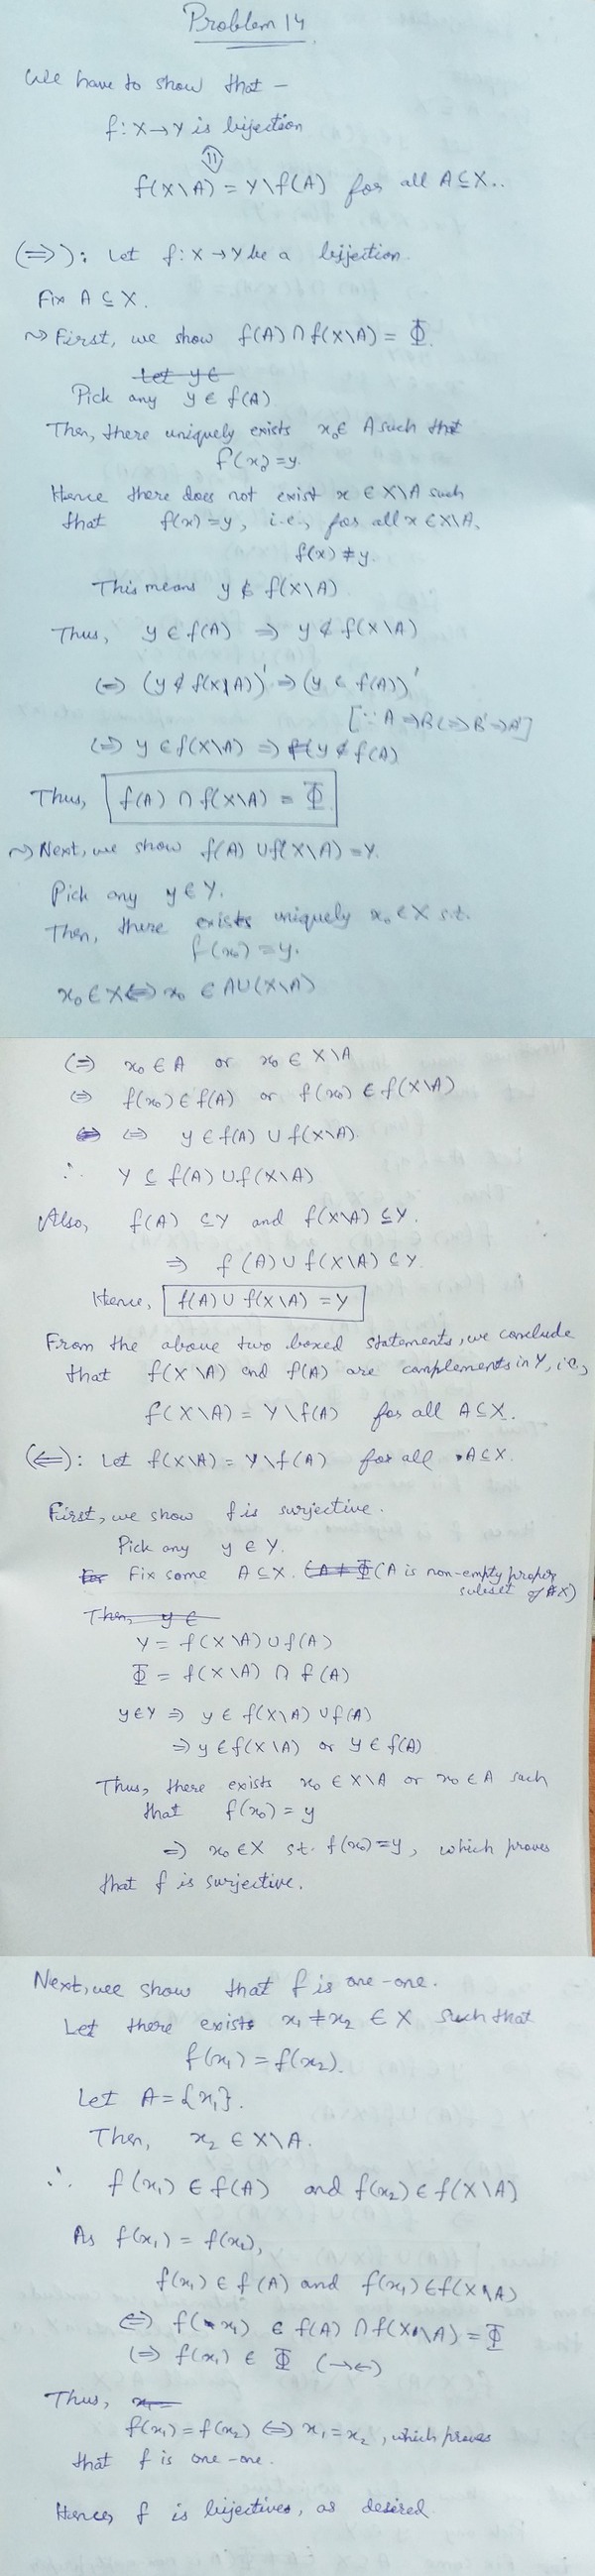 Problem 14
We have to show that –
f: X→Y is bijection
⇕
f(X\A) = Y\f(A) for all A⊆X..
(⇒): Let f: X→Y be a bijection.
Fix A ⊆ X.
~> First, we show f(A) ∩ f(X\A) = Φ.
Let y ∈
Pick any y ∈ f(A)
Then, there uniquely exists x₀ ∈ A such that
f(x₀) = y.
Hence there does not exist x ∈ X\A such
that f(x) = y, i.e., for all x ∈ X\A,
f(x) ≠ y.
This means y ∉ f(X\A)
Thus, y ∈ f(A) ⇒ y ∉ f(X\A)
⇔ (y ∉ f(X\A))' ⇒ (y ∈ f(A))'
[∵ A ⇒ B ⇔ B' ⇒ A']
⇔ y ∈ f(X\A) ⇒ y ∉ f(A)
Thus, f(A) ∩ f(X\A) = Φ
~> Next, we show f(A) ∪ f(X\A) = Y.
Pick any y ∈ Y.
Then, there exists uniquely x₀ ∈ X s.t.
f(x₀) = y.
x₀ ∈ X ⇔ x₀ ∈ A∪(X\A)
⇔ x₀ ∈ A or x₀ ∈ X\A
⇔ f(x₀) ∈ f(A) or f(x₀) ∈ f(X\A)
⇔ ⇔ y ∈ f(A) ∪ f(X\A).
∴ Y ⊆ f(A) ∪ f(X\A)
Also, f(A) ⊆ Y and f(X\A) ⊆ Y.
⇒ f(A) ∪ f(X\A) ⊆ Y.
Hence, f(A) ∪ f(X\A) = Y
From the above two boxed statements, we conclude
that f(X\A) and f(A) are complements in Y, i.e.,
f(X\A) = Y\f(A) for all A⊆X.
(⇐): Let f(X\A) = Y\f(A) for all A⊆X.
First, we show f is surjective.
Pick any y ∈ Y.
For Fix some A ⊆ X. (A ≠ Φ (A is non-empty proper
subset of X)
Then, y ∈
Y = f(X\A) ∪ f(A)
Φ = f(X\A) ∩ f(A)
y∈Y ⇒ y ∈ f(X\A) ∪ f(A)
⇒ y ∈ f(X\A) or y ∈ f(A)
Thus, there exists x₀ ∈ X\A or x₀ ∈ A such
that f(x₀) = y
⇒ x₀ ∈ X s.t. f(x₀) = y, which proves
that f is surjective.
Next, we show that f is one-one.
Let there exists x₁ ≠ x₂ ∈ X such that
f(x₁) = f(x₂).
Let A = {x₁}.
Then, x₂ ∈ X\A.
∴ f(x₁) ∈ f(A) and f(x₂) ∈ f(X\A)
As f(x₁) = f(x₂),
f(x₁) ∈ f(A) and f(x₁) ∈ f(X\A)
⇔ f(x₁) ∈ f(A) ∩ f(X\A) = Φ
⇔ f(x₁) ∈ Φ (→←)
Thus, x₁ =
f(x₁) = f(x₂) ⇔ x₁ = x₂, which proves
that f is one-one.
Hence, f is bijective, as desired.